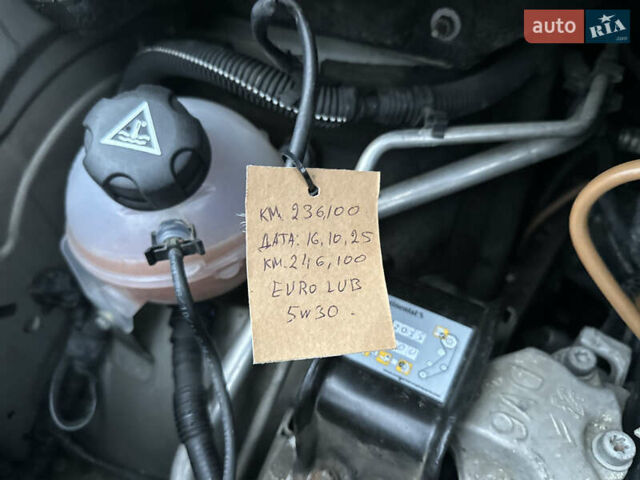 auto RIA.com
КМ. 236,100
ДАТА: 16, 10, 25
КМ. 246,100
EURO LUB
5W30.